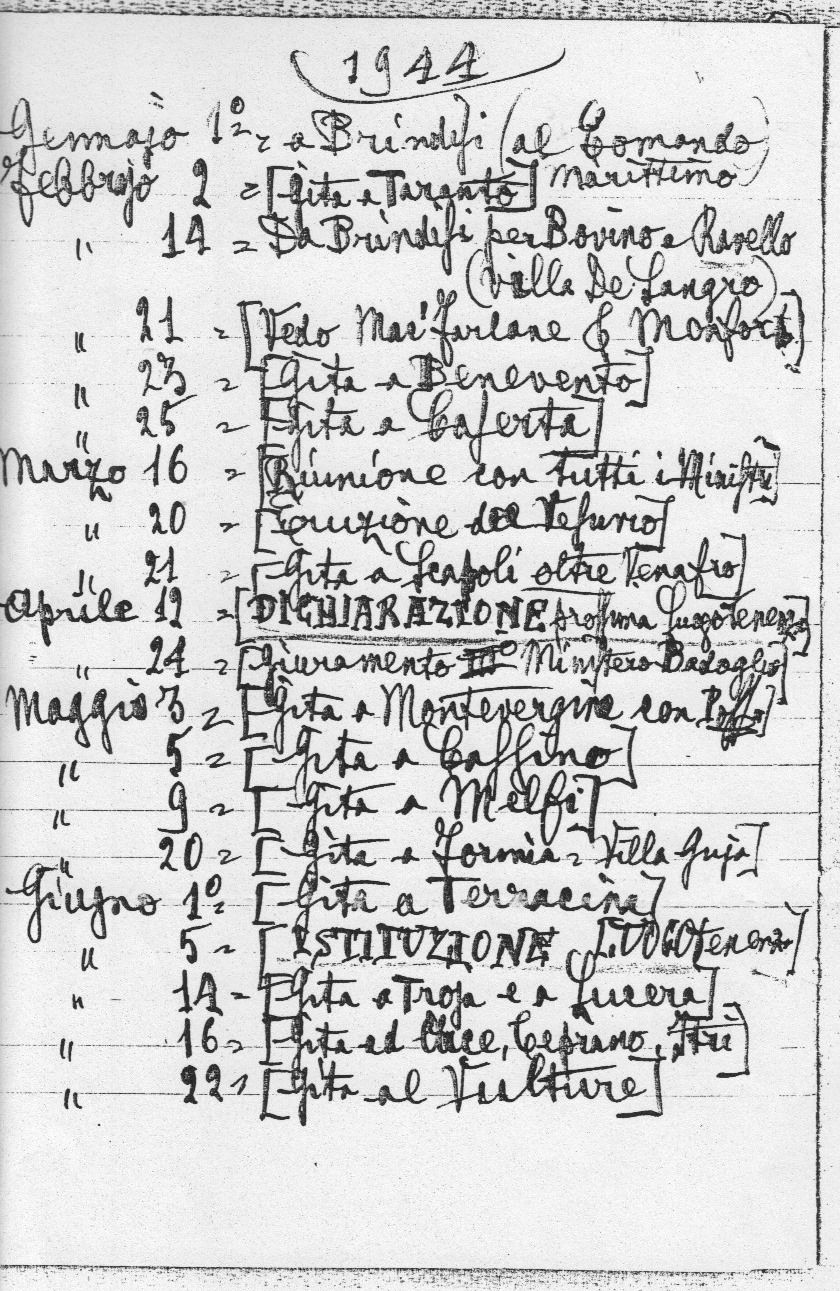 1944
Gennajo 1º = a Brindisi (al Comando
Marittimo)
Febbrajo 2 = [Gita a Taranto]
" 14 = Da Brindisi per Bovino e Ravello
(Villa De Sangro)
" 21 = [Vedo Mac'Farlane &
" 23 = [Gita a Benevento]
" 25 = [Gita a Caserta]
Marzo 16 = [Riunione con tutti i Ministri]
" 20 = [Eruzione del Vesuvio]
" 21 = [Gita a Scapoli oltre Venafro]
Aprile 12 = [DICHIARAZIONE prossima Luogotenenza]
" 24 = [Giuramento IIIº Ministero Badoglio]
Maggio 3 = [Gita a Montevergine con
" 5 = [Gita a Cassino]
" 9 = [Gita a Melfi]
" 20 = [Gita a Formia = Villa
Giugno 1º = [Gita a Terracina]
" 5 = [ISTITUZIONE LUOGOtenenza]
" 14 = [Gita a Troja e a Lucera]
" 16 = [Gita ad Arce, Ceprano, Itri]
" 22 = [Gita al Vulture]